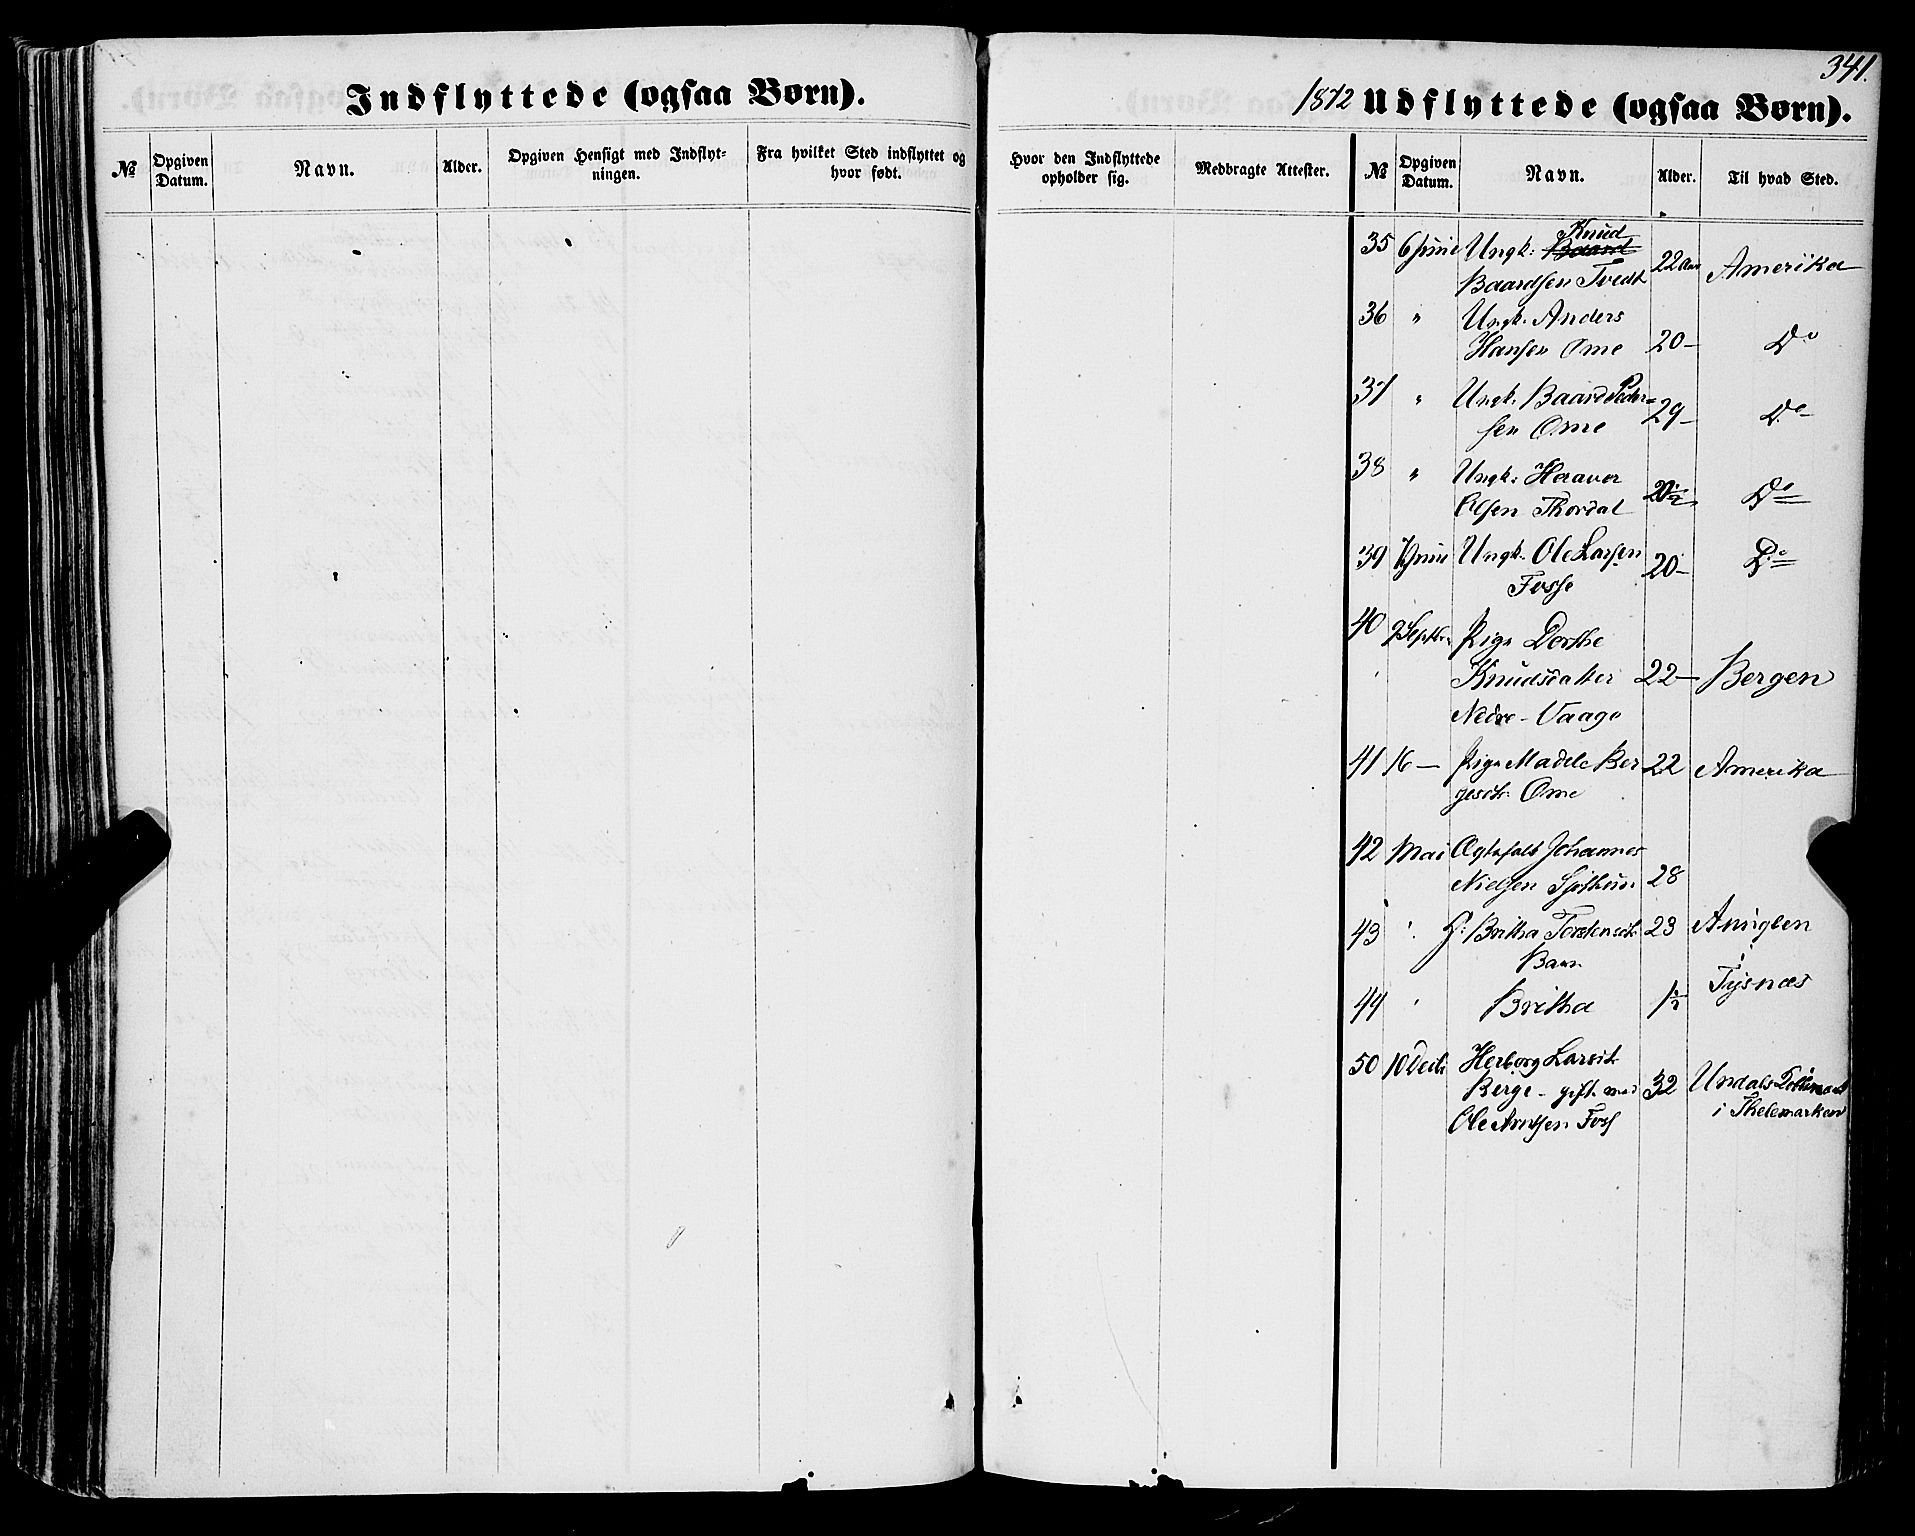 341.
Indflyttede (ogsaa Børn).
1872 Udflyttede (ogsaa Børn).
№ Opgiven Datum. Navn. Alder. Opgiven Hensigt med Indflyt-ningen. Fra hvilket Sted indflyttet og hvor født. Hvor den Indflyttede opholder sig. Medbragte Attester. № Opgiven Datum. Navn. Alder. Til hvad Sted.
35 6 Juni Ungk: Baard Knud
Baardsen Tvedt 22 Aar Amerika
36 " Ungk. Anders
Hansen Ome 20 – Do
37 " Ungk. Baard Peder-
sen Ome 29 – Do
38 " Ungk. Heraver
Olsen Thordal 20½ Do
39 Juni Ungk. Ole Larsen
Fosse 20 – Do
40 9 Septbr Pige Dorthe
Knudsdatter 22 – Bergen
Nedre-Vaage
41 16 – Pige Madele Ber 22 Amerika
gesdtr. Ome
42 Mai Johannes
Nielsen 28
43 " H: Britha Torstensdtr 23
Barn
i
Tysnæs
44 " Britha 1½
50 10 Decbr Herborg Larsdtr
Berge – gift med 32 Undals
Ole Arntsen Foss i Thelemarken